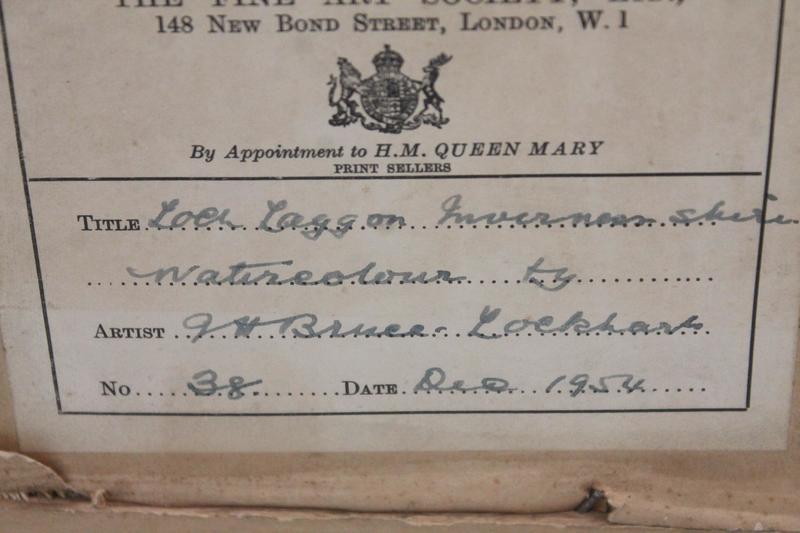 THE FINE ART SOCIETY, LTD.,
148 NEW BOND STREET, LONDON, W.1
By Appointment to H.M. QUEEN MARY
PRINT SELLERS
TITLE Loch Laggan Inverness shire
Watercolour by
ARTIST J H Bruce-Lockhart
No 38 DATE Dec 1954